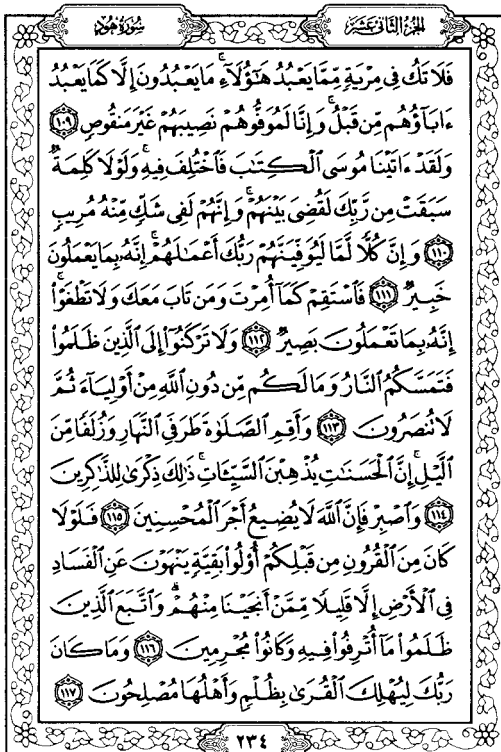 سُورَةُ هُودٍ
الجُزْءُ الثَّانِي عَشَرَ
فَلَا تَكُ فِي مِرْيَةٍ مِّمَّا يَعْبُدُ هَـٰٓؤُلَآءِ ۚ مَا يَعْبُدُونَ إِلَّا كَمَا يَعْبُدُ
ءَابَآؤُهُم مِّن قَبْلُ ۚ وَإِنَّا لَمُوَفُّوهُمْ نَصِيبَهُمْ غَيْرَ مَنقُوصٍ ١٠٩
وَلَقَدْ ءَاتَيْنَا مُوسَى ٱلْكِتَـٰبَ فَٱخْتُلِفَ فِيهِ ۚ وَلَوْلَا كَلِمَةٌ
سَبَقَتْ مِن رَّبِّكَ لَقُضِيَ بَيْنَهُمْ ۚ وَإِنَّهُمْ لَفِي شَكٍّ مِّنْهُ مُرِيبٍ
١١٠ وَإِنَّ كُلًّا لَّمَّا لَيُوَفِّيَنَّهُمْ رَبُّكَ أَعْمَـٰلَهُمْ ۚ إِنَّهُۥ بِمَا يَعْمَلُونَ
خَبِيرٌ ١١١ فَٱسْتَقِمْ كَمَآ أُمِرْتَ وَمَن تَابَ مَعَكَ وَلَا تَطْغَوْا۟ ۚ
إِنَّهُۥ بِمَا تَعْمَلُونَ بَصِيرٌ ١١٢ وَلَا تَرْكَنُوٓا۟ إِلَى ٱلَّذِينَ ظَلَمُوا۟
فَتَمَسَّكُمُ ٱلنَّارُ وَمَا لَكُم مِّن دُونِ ٱللَّهِ مِنْ أَوْلِيَآءَ ثُمَّ
لَا تُنصَرُونَ ١١٣ وَأَقِمِ ٱلصَّلَوٰةَ طَرَفَيِ ٱلنَّهَارِ وَزُلَفًا مِّنَ
ٱلَّيْلِ ۚ إِنَّ ٱلْحَسَنَـٰتِ يُذْهِبْنَ ٱلسَّيِّـَٔاتِ ۚ ذَٰلِكَ ذِكْرَىٰ لِلذَّٰكِرِينَ
١١٤ وَٱصْبِرْ فَإِنَّ ٱللَّهَ لَا يُضِيعُ أَجْرَ ٱلْمُحْسِنِينَ ١١٥ فَلَوْلَا
كَانَ مِنَ ٱلْقُرُونِ مِن قَبْلِكُمْ أُو۟لُوا۟ بَقِيَّةٍ يَنْهَوْنَ عَنِ ٱلْفَسَادِ
فِي ٱلْأَرْضِ إِلَّا قَلِيلًا مِّمَّنْ أَنجَيْنَا مِنْهُمْ ۗ وَٱتَّبَعَ ٱلَّذِينَ
ظَلَمُوا۟ مَآ أُتْرِفُوا۟ فِيهِ وَكَانُوا۟ مُجْرِمِينَ ١١٦ وَمَا كَانَ
رَبُّكَ لِيُهْلِكَ ٱلْقُرَىٰ بِظُلْمٍ وَأَهْلُهَا مُصْلِحُونَ ١١٧
٢٣٤